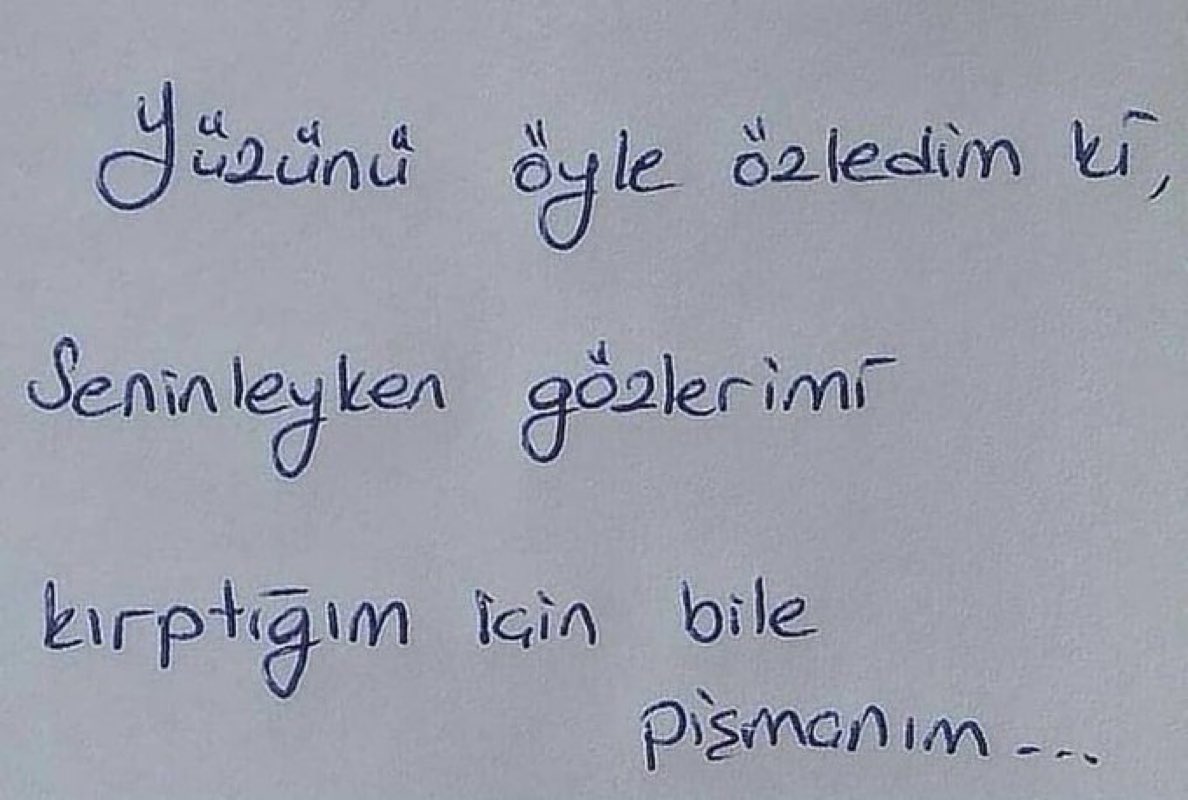 Yüzünü öyle özledim ki,
Seninleyken gözlerimi
kırptığım için bile
pişmanım...